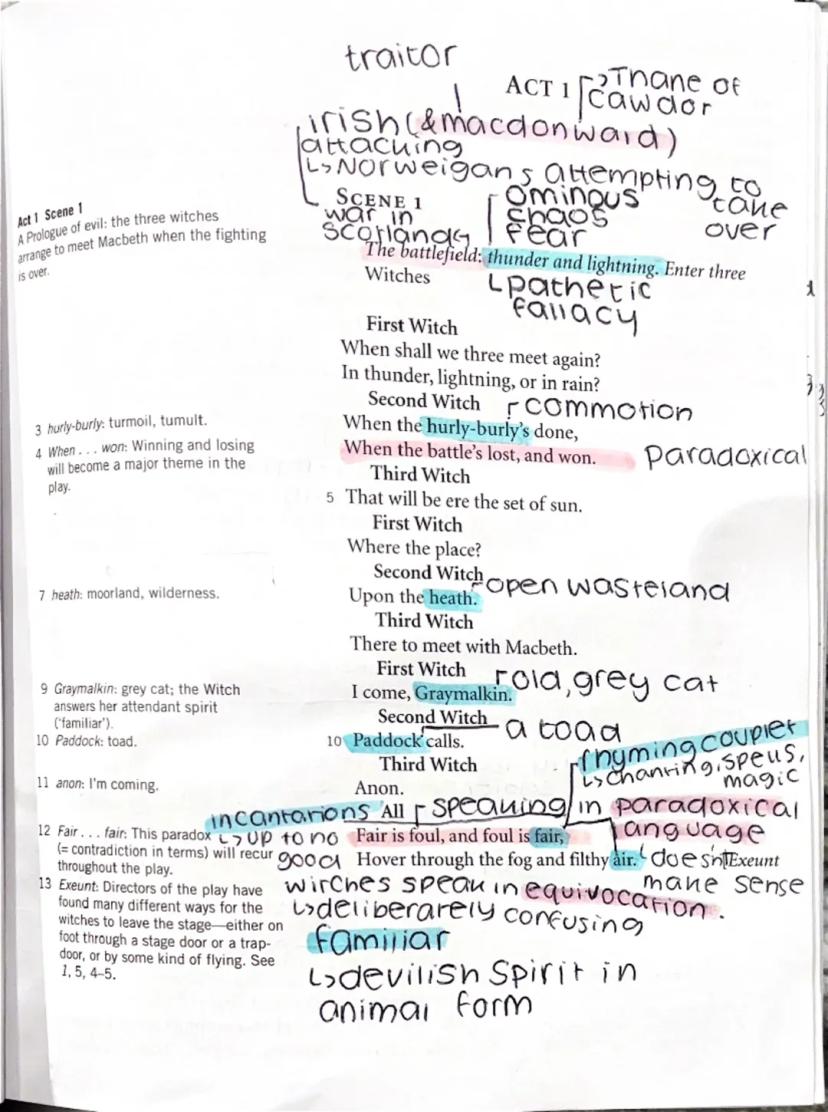 traitor
ACT 1
Thane of
cawdor
irish (& macdonward)
attacking
↳Norweigans attempting to
take
over
SCENE 1
war in
scotland
ominous
chaos
fear
Act 1 Scene 1
A Prologue of evil: the three witches
arrange to meet Macbeth when the fighting
is over.
The battlefield: thunder and lightning. Enter three
Witches
↳pathetic
fallacy
First Witch
When shall we three meet again?
In thunder, lightning, or in rain?
Second Witch
commotion
3 hurly-burly: turmoil, tumult.
When the hurly-burly's done,
4 When . . . won: Winning and losing
will become a major theme in the
play.
When the battle's lost, and won.
Paradoxical
Third Witch
5 That will be ere the set of sun.
First Witch
Where the place?
Second Witch
open wasteland
7 heath: moorland, wilderness.
Upon the heath.
Third Witch
There to meet with Macbeth.
First Witch
old, grey cat
9 Graymalkin: grey cat; the Witch
answers her attendant spirit
('familiar').
I come, Graymalkin.
Second Witch
a toad
10 Paddock: toad.
10 Paddock calls.
rhyming couplet
↳chanting, spells,
magic
Third Witch
11 anon: I'm coming.
Anon.
incantations
All
speaking in paradoxical
language
↳up to no
good
doesn't
make sense
12 Fair . . . fair: This paradox
(= contradiction in terms) will recur
throughout the play.
Fair is foul, and foul is fair,
Hover through the fog and filthy air.
Exeunt
13 Exeunt: Directors of the play have
found many different ways for the
witches to leave the stage—either on
foot through a stage door or a trap-
door, or by some kind of flying. See
1, 5, 4–5.
witches speak in equivocation.
↳deliberately confusing
familiar
↳devilish spirit in
animal form